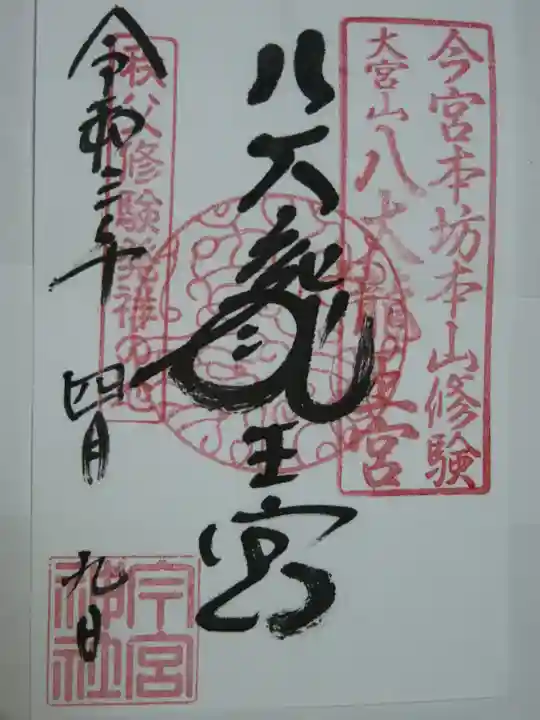 今宮本坊本山修験
大宮山八大龍王宮
八大龍王宮
秩父修験発祥の地
令和三年四月九日
今宮神社